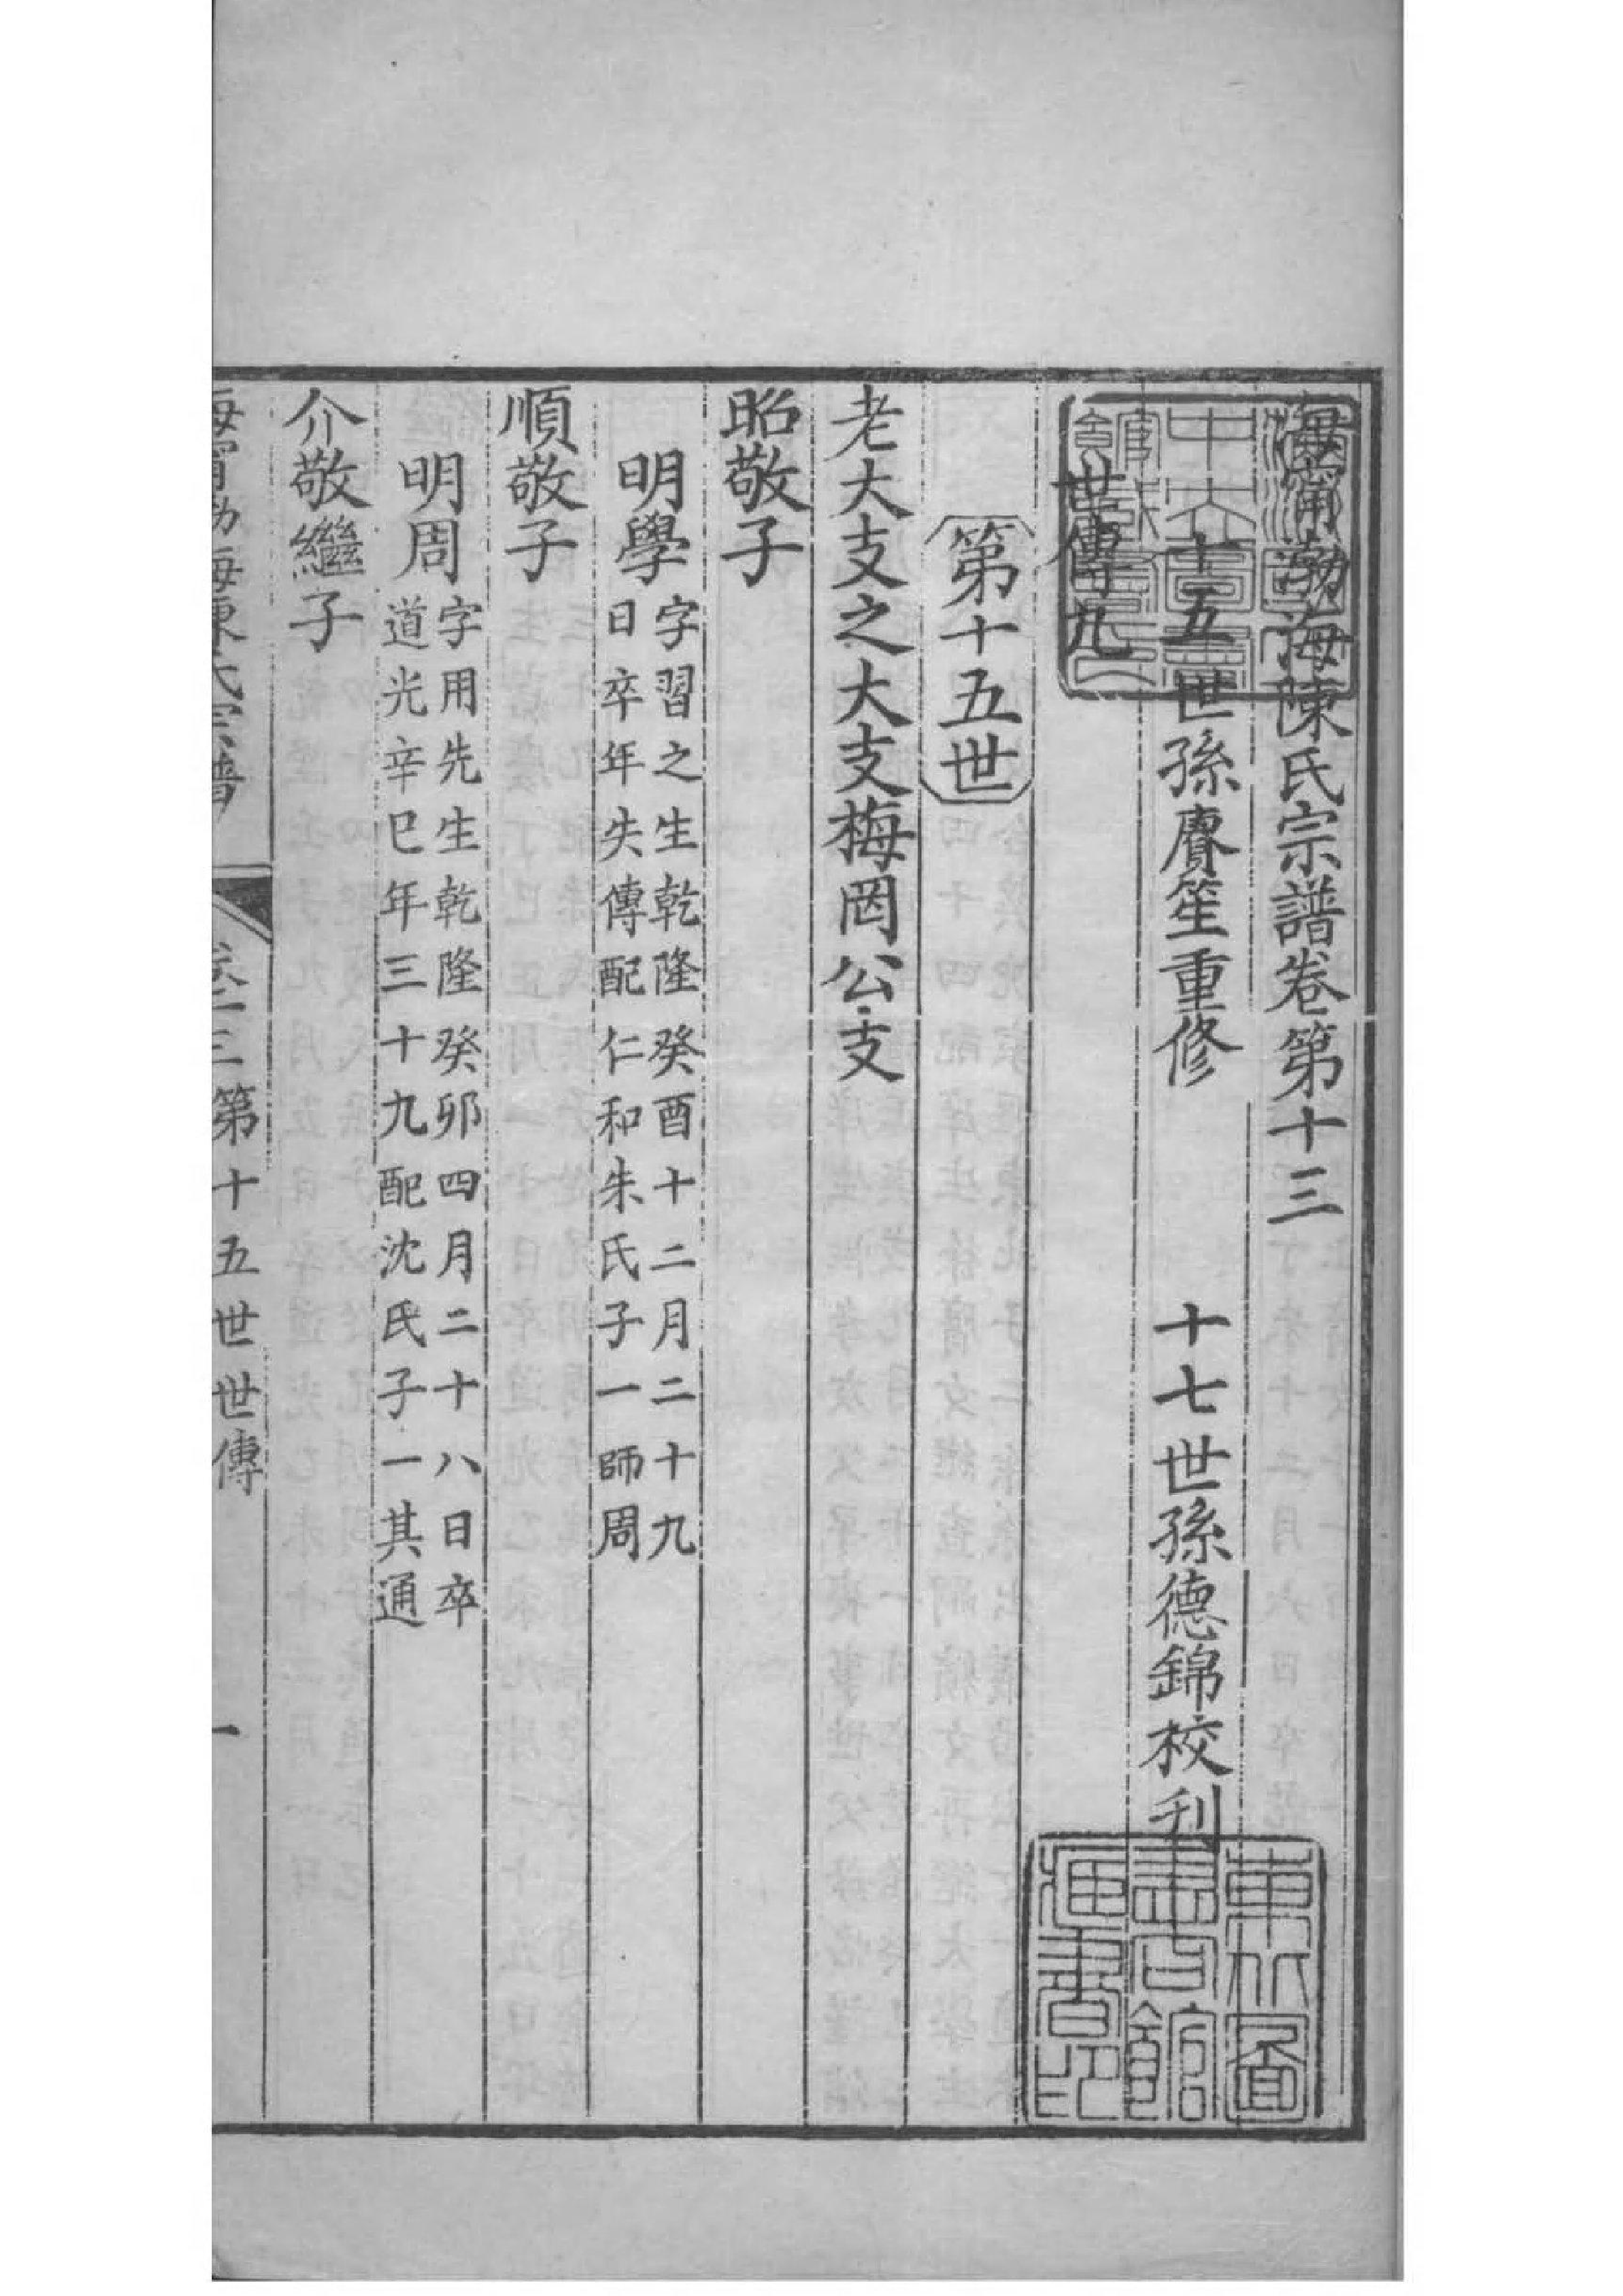 海寗渤海陳氏宗譜卷第十三
十五世孫賡笙重修　十七世孫德錦校刊
世傳九
第十五世
老大支之大支梅岡公支
昭敬子
明學
字習之生乾隆癸酉十二月二十九
日卒年失傳配仁和朱氏子一師周
順敬子
明周
字用先生乾隆癸卯四月二十八日卒
道光辛巳年三十九配沈氏子一其通
介敬繼子
海寗渤海陳氏宗譜
卷十三第十五世世傳
一
東北圖
書館
書印